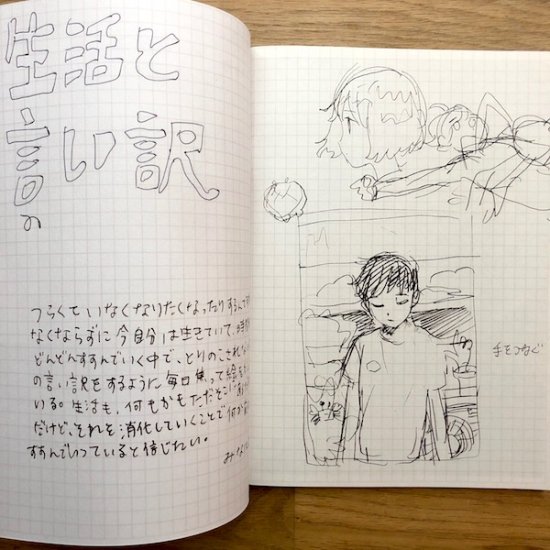 生活と
言い訳
の
つらくていなくなりたくなったりするんで
なくならずに今自分は生きていて、時
どんどんすすんでいく中で、とりのこされ
の言い訳をするように毎日焦って絵を
いる。生活も、何もかもただそこに
だけど、それを消化していくことで何か
すすんでいっていると信じたい。
みな
手をつなぐ